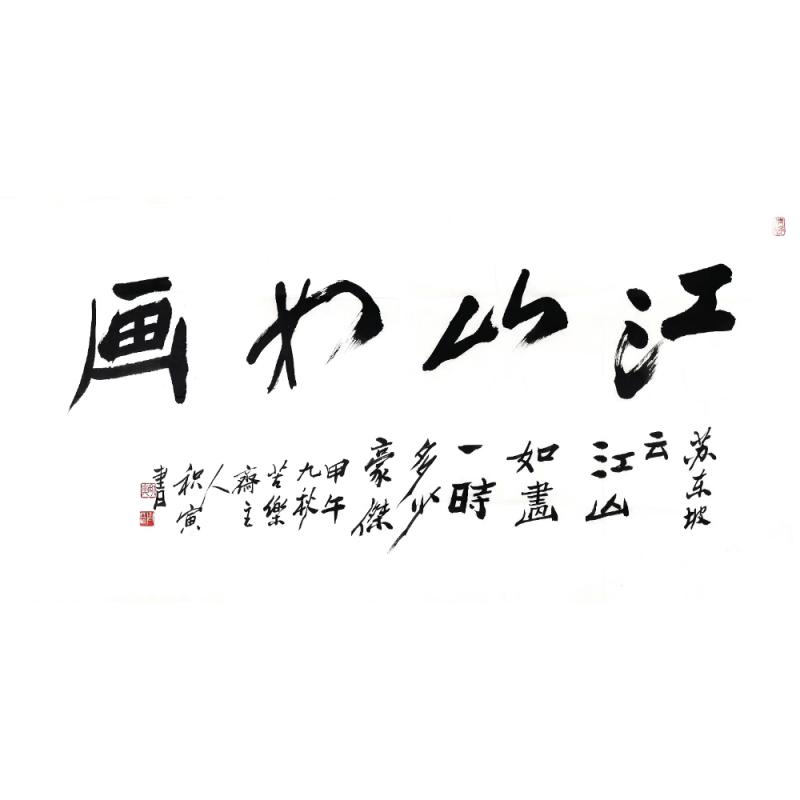 江山如画
苏东坡
云
江山
如畫
一時
多少
豪傑
甲午
九秋
苦樂
齋主
人
积寅
書